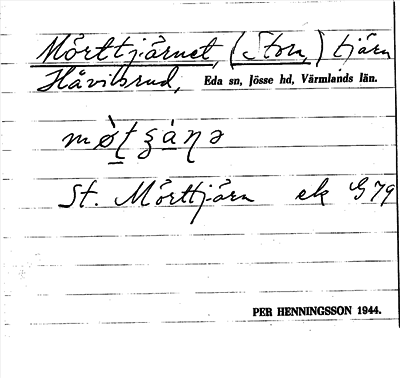 Mörttjärnet, (Stora,) tjärn
Håvilsrud, Eda sn, Jösse hd, Värmlands län.
St. Mörttjärn ek G79
PER HENNINGSSON 1944.